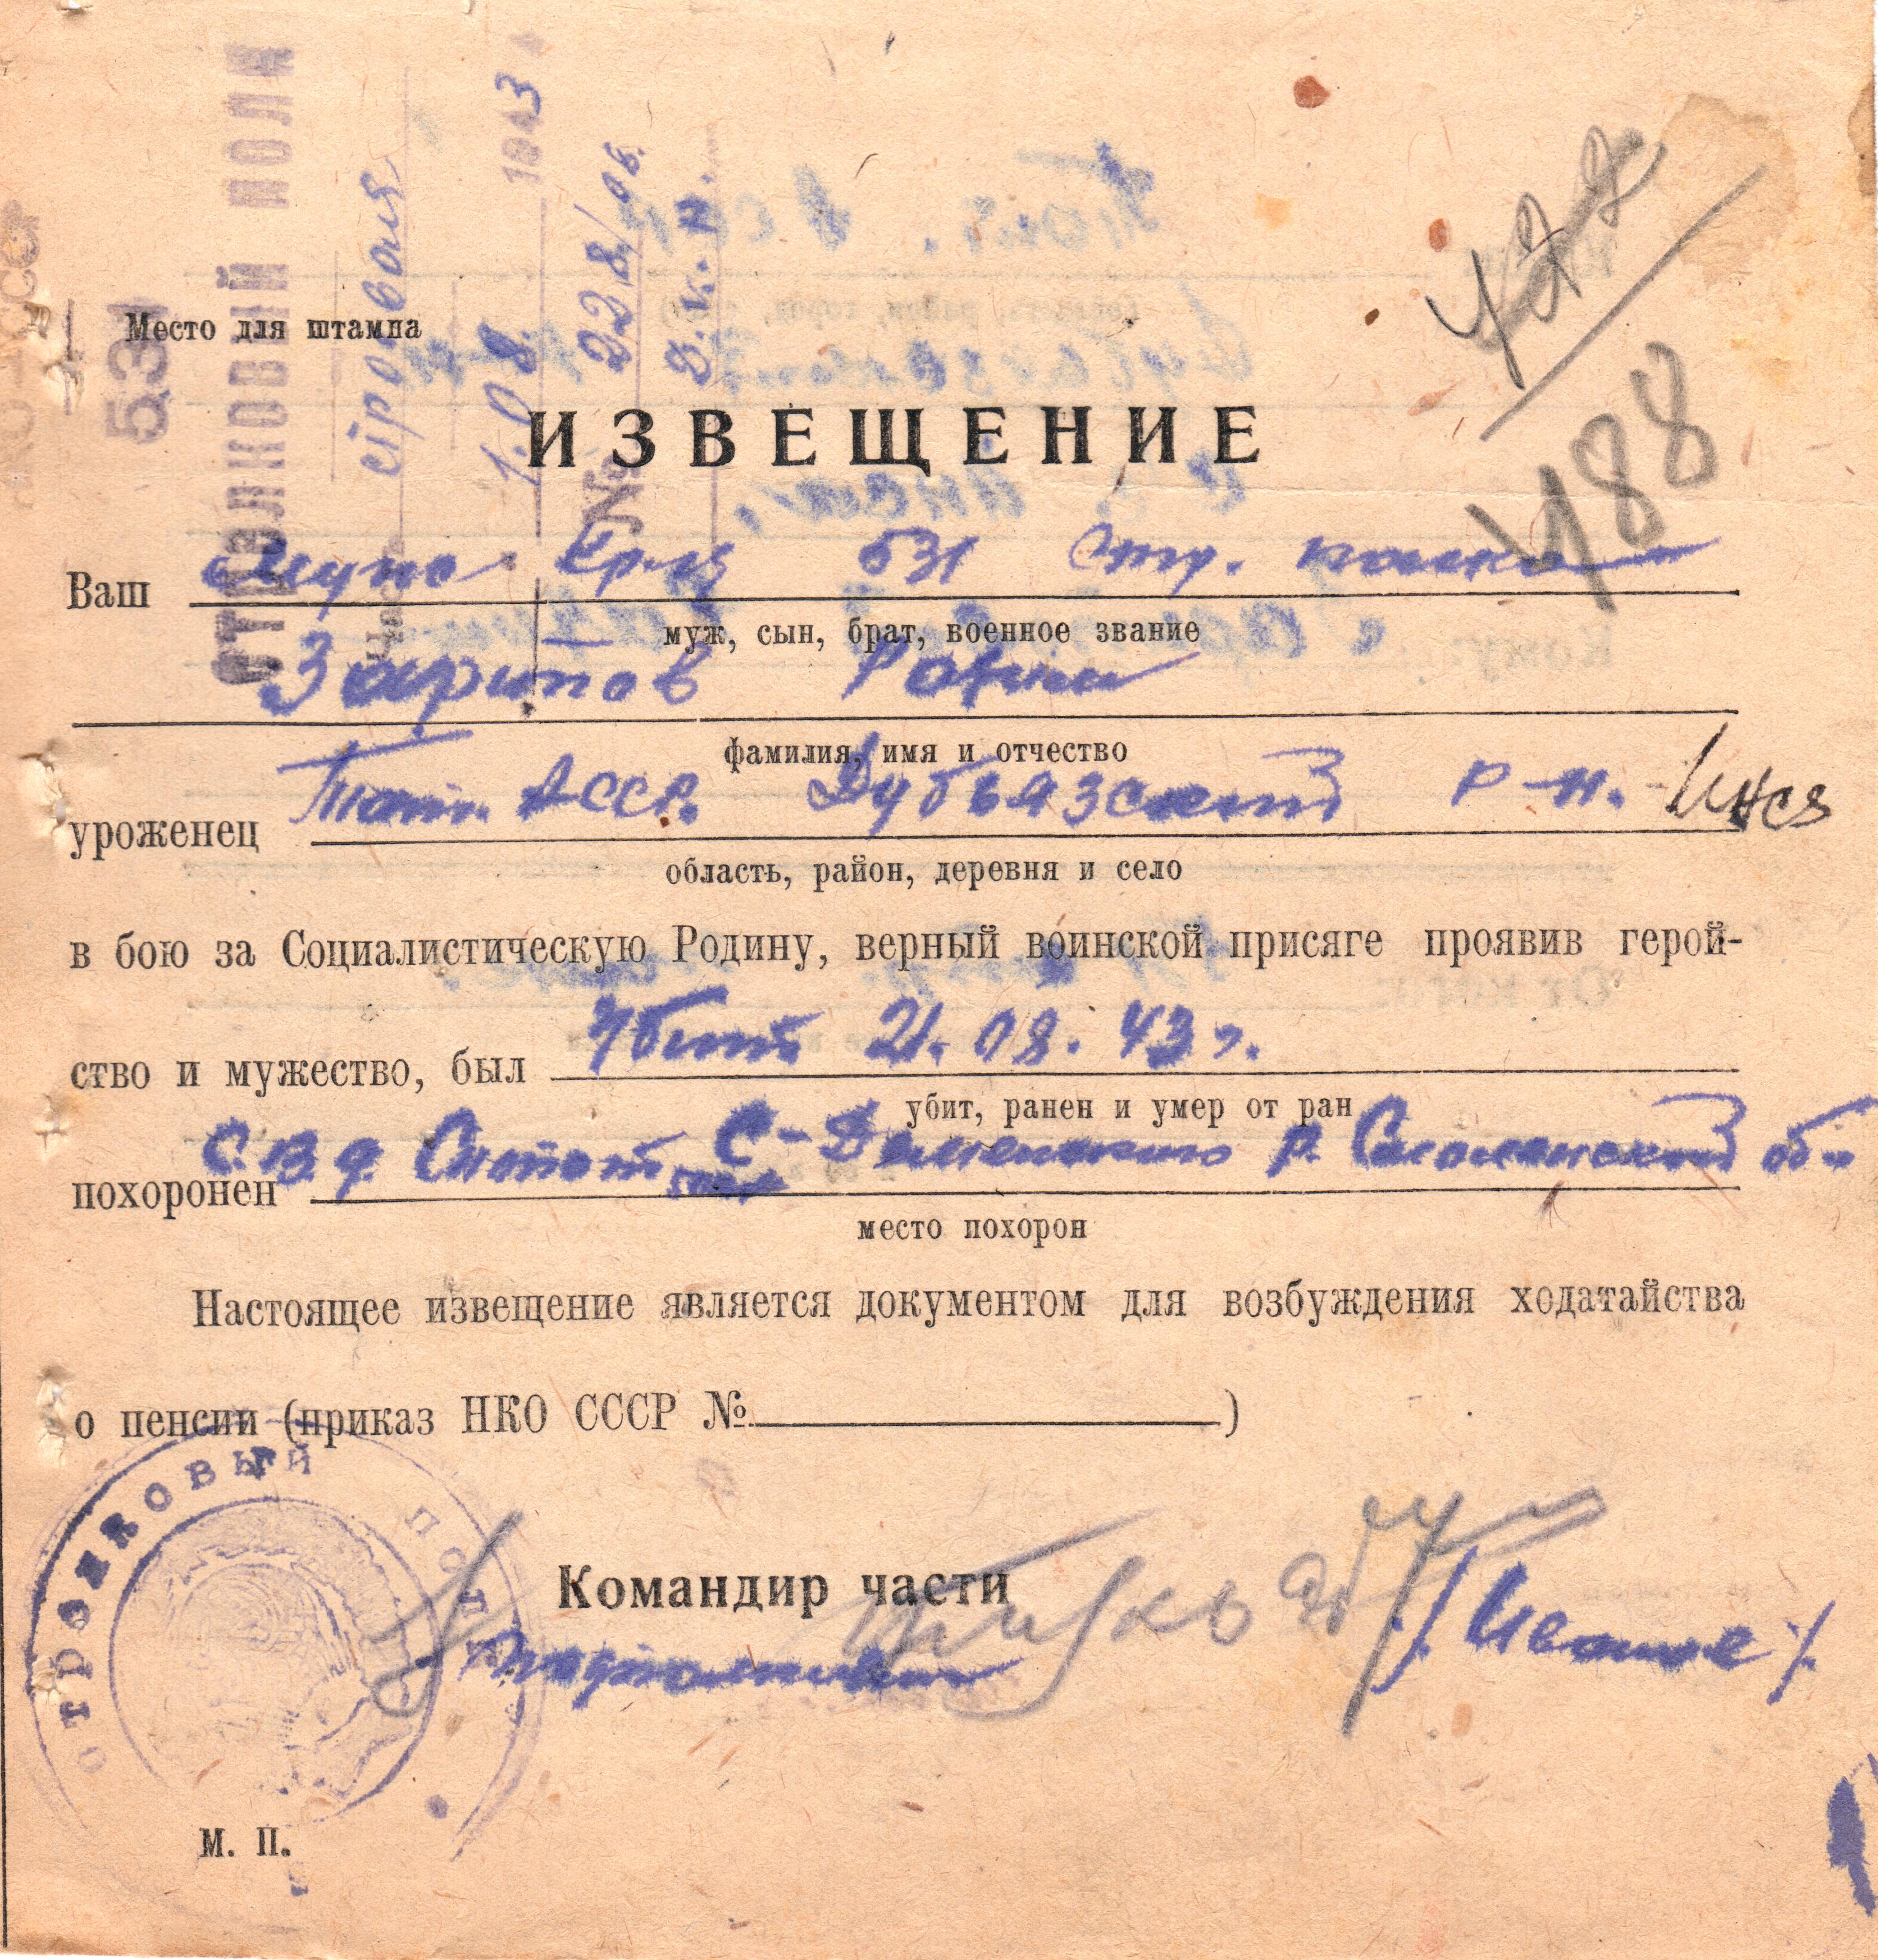 531
СТРЕЛКОВЫЙ ПОЛК
Часть строевая
1.08. 1943
№ 228/06.
Д.К.Н.
Место для штампа
488
ИЗВЕЩЕНИЕ
Ваш муж кр-ц 531 Стр. полка
муж, сын, брат, военное звание
Зарипов
фамилия, имя и отчество
уроженец Тат. АССР. Дубьязский р-н.
область, район, деревня и село
в бою за Социалистическую Родину, верный воинской присяге проявив герой-
ство и мужество, был Убит 21.08.43 г.
убит, ранен и умер от ран
похоронен С.В. д. С-Деменского р. Смоленский об-
место похорон
Настоящее извещение является документом для возбуждения ходатайства
о пенсии (приказ НКО СССР № )
Командир части
Подполковник
стрелковый полк
М. П.